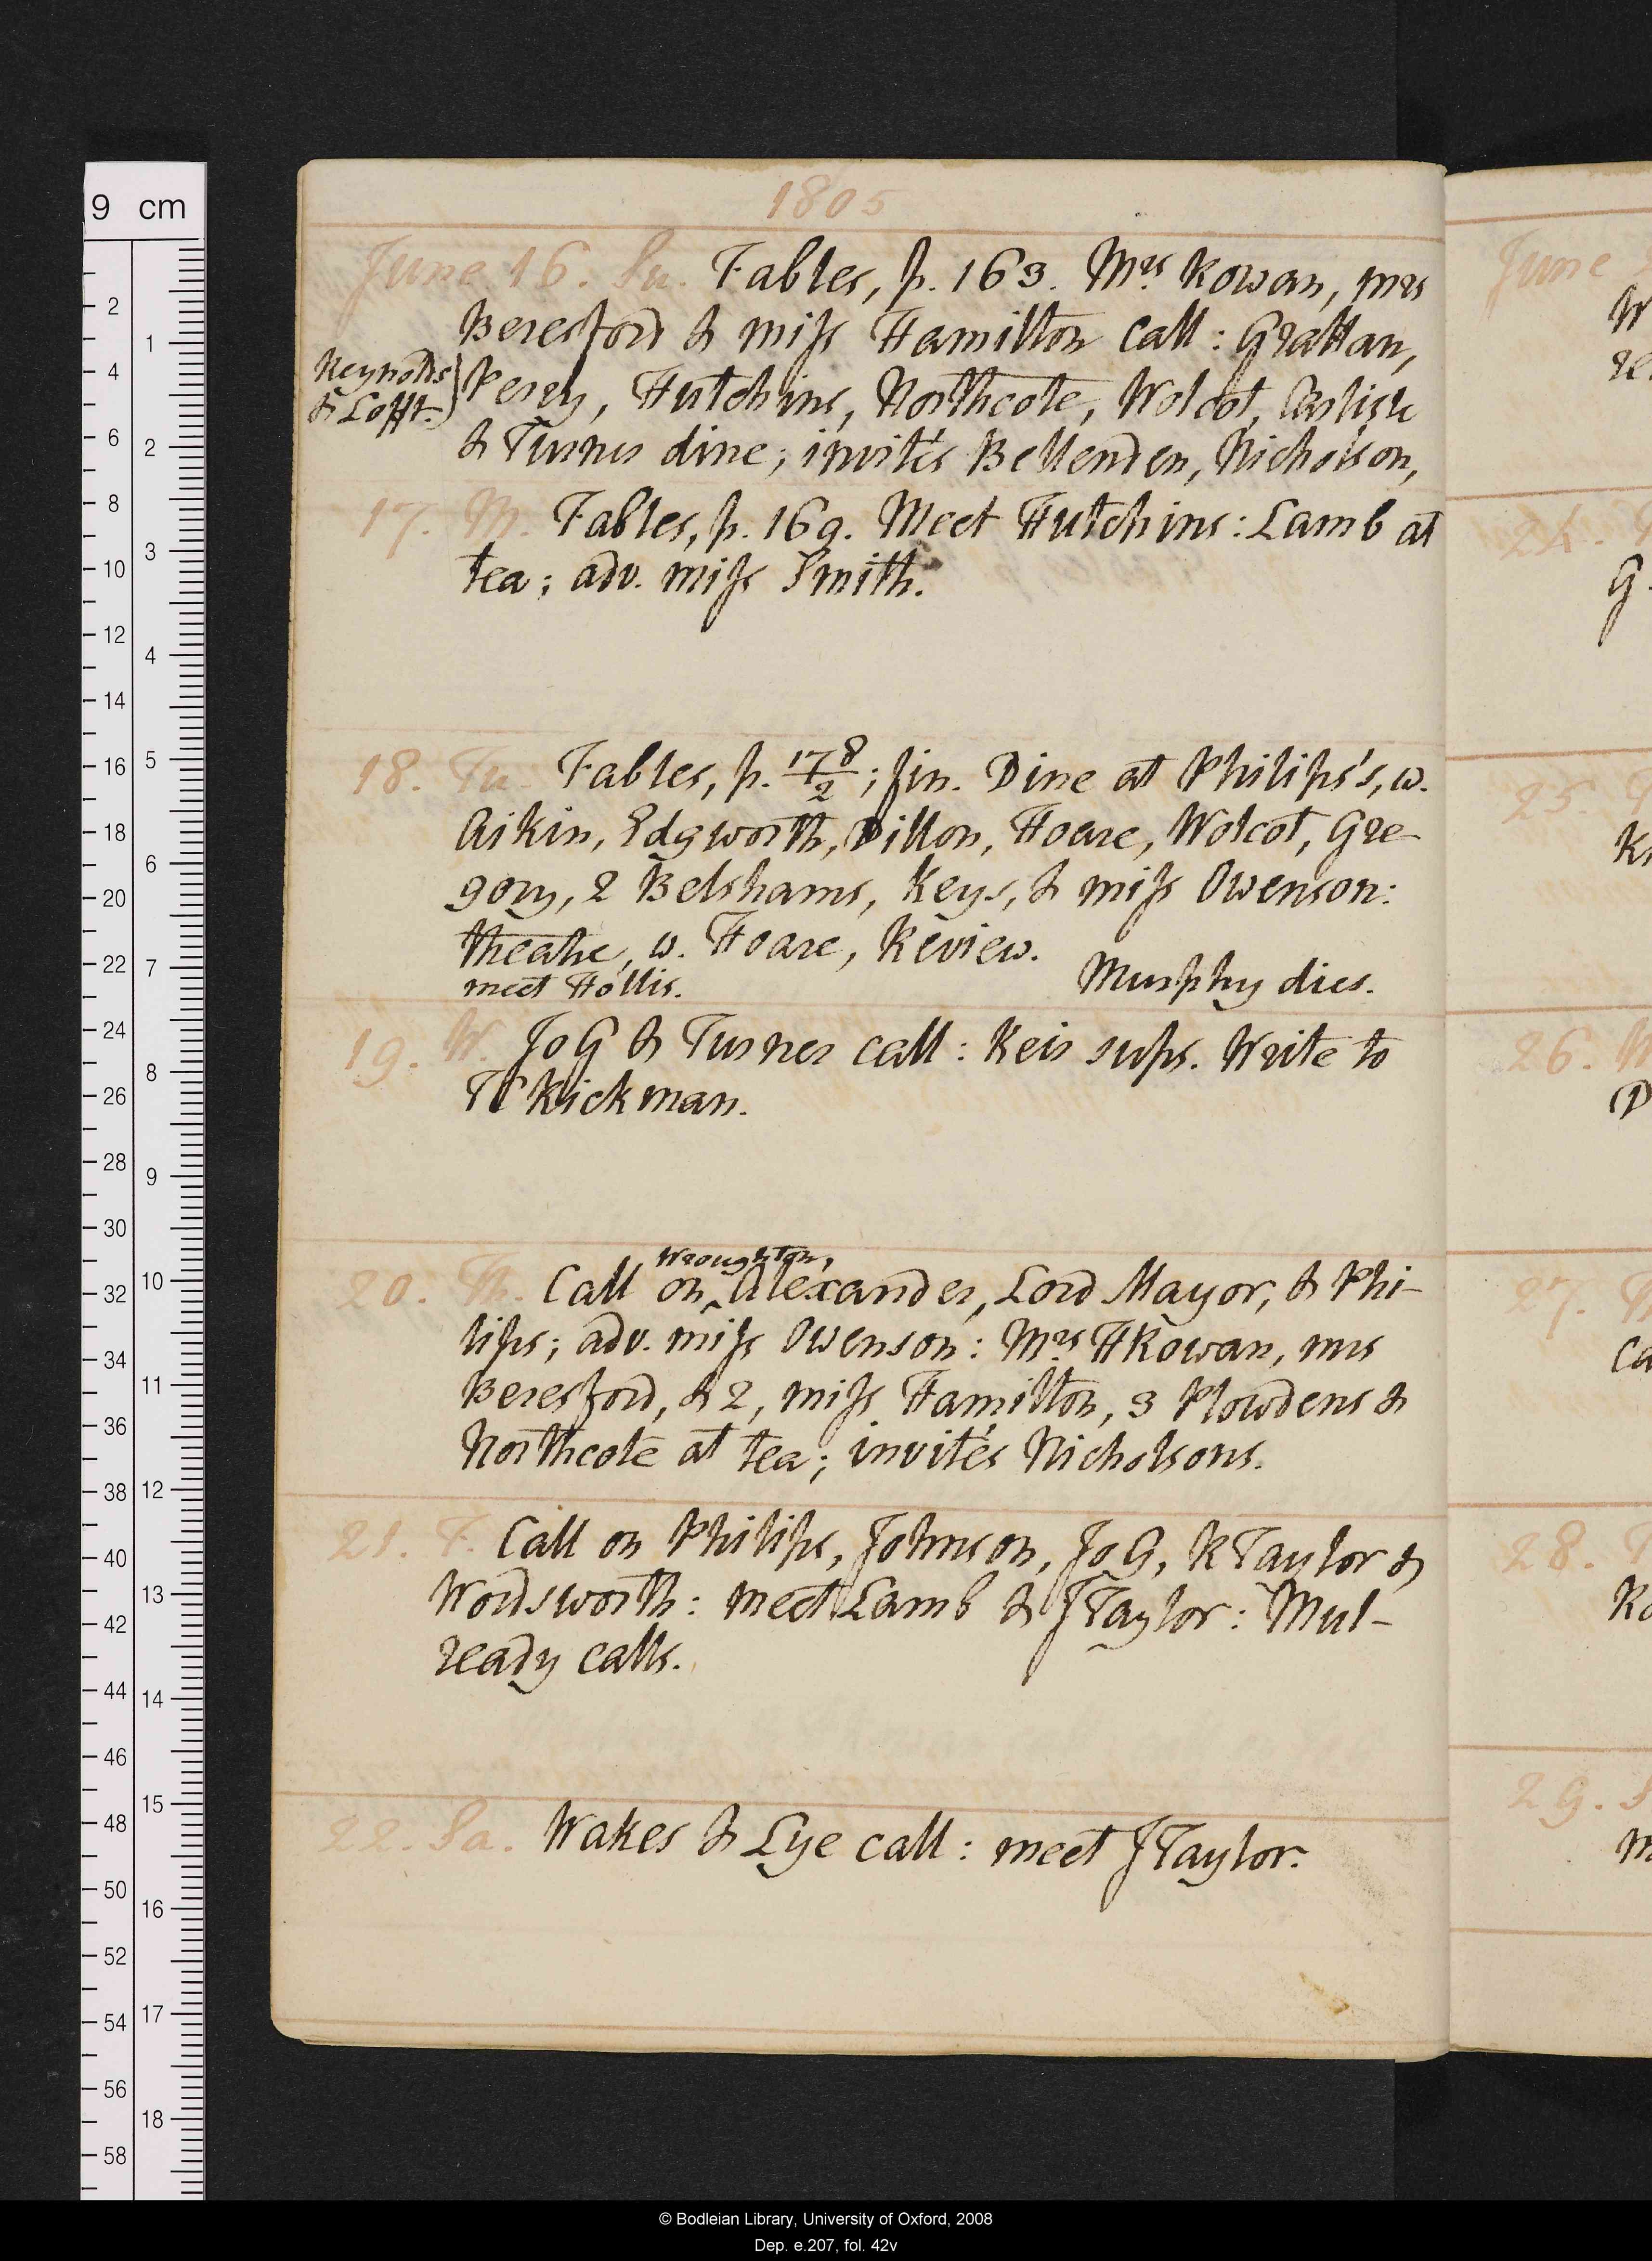 1805
June 16. Su. Fables, p. 163. Mrs Rowan, mrs
Beresford & miss Hamilton call: Grattan,
Reynolds
& Lofft.)
Perry, Hutchins, Northcote, Wolcot, Carlisle
& Turner dine; invités Bellenden, Nicholson,
17. M. Fables, p. 169. Meet Hutchins: Lamb at
tea; adv. miss Smith.
18. Tu. Fables, p. 178/2; fin. Dine at Philips's, w.
Aikin, Edgworth, Dillon, Hoare, Wolcot, Gre-
gory, 2 Belshams, Keys, & miss Owenson:
theatre, w. Hoare, Review.
meet Hollis.
Murphy dies.
19. W. JoG & Turner call: Keir sups. Write to
TC Rickman.
Wroughton,
20. Th. Call on ‸ Alexander, Lord Mayor, & Phi-
lips; adv. miss Owenson: Mrs HRowan, mrs
Beresford, & 2, miss Hamilton, 3 Plowdens &
Northcote at tea; invités Nicholsons.
21. F. Call on Philips, Johnson, JoG, RTaylor &
Wordsworth: meet Lamb & JTaylor: Mul-
ready calls.
22. Sa. Wakes & Lye call: meet JTaylor.
June
W
re
24.
G.
25
K
26.
(D
27.
Ca
28.
Ro
29. S
m
9 cm
2
4
6
8
10
12
14
16
18
20
22
24
26
28
30
32
34
36
38
40
42
44
46
48
50
52
54
56
58
1
2
3
4
5
6
7
8
9
10
11
12
13
14
15
16
17
18
© Bodleian Library, University of Oxford, 2008
Dep. e.207, fol. 42v